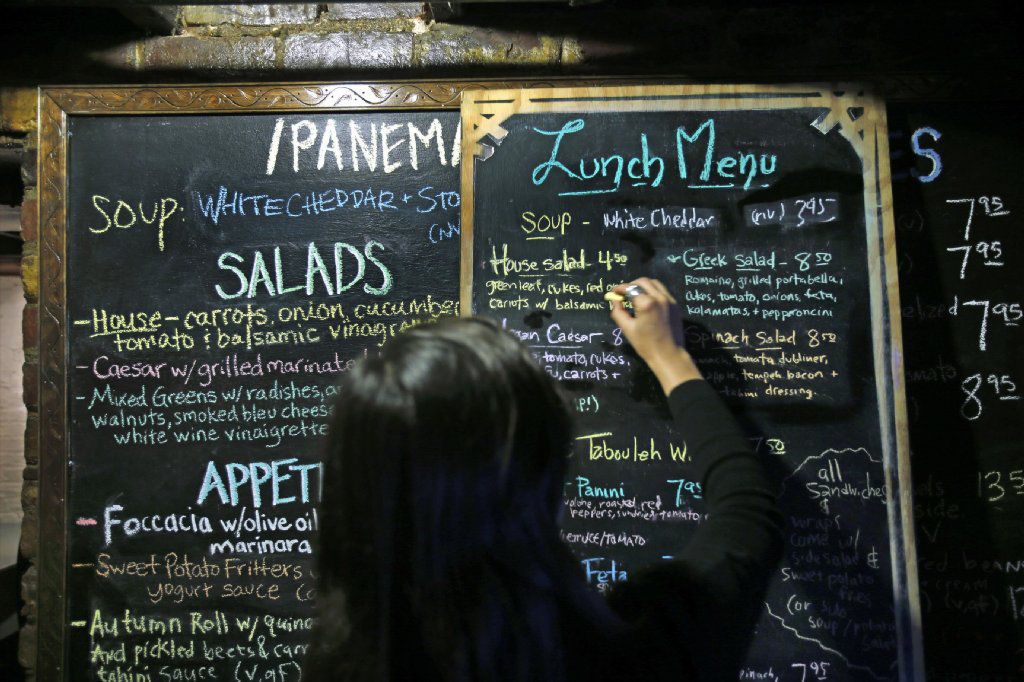 IPANEM
SOUP: WHITE CHEDDAR + STO
(NV
SALADS
- House - carrots, onion, cucumber
tomato & balsamic vinag
- Caesar w/ grilled marinate
- Mixed Greens w/ radishes, a
walnuts, smoked bleu cheese
white wine vinaigrette
APPET
- Foccacia w/ olive oil
marinara
- Sweet Potato Fritters
yogurt sauce
- Autumn Roll w/ quino
And pickled beets & carr
tahini sauce (v,gf)
Lunch Menu
SOUP - White Cheddar (nv) 3.95
House salad - 4.50
greenleaf, cukes, red on
carrots w/ balsamic
Caesar 8
tomato, cukes,
carrots +
Greek Salad - 8.50
Romaine, grilled portabella,
cukes, tomato, onions, feta,
kalamatas, + pepperoncini
Spinach Salad 8.50
tomato, dubliner,
tempeh bacon +
dressing.
Tabouleh W
7.50
- Panini 7.95
roasted red
peppers, sundried tomato
lettuce/tomato
Feta
all
Sandwiches
&
wraps
come w/
side salad
&
sweet potato
fries
(or side
soup/potato
salad
spinach, 7.95
ES
7.95
7.95
d 7.95
8.95
13.5
(v,gf)